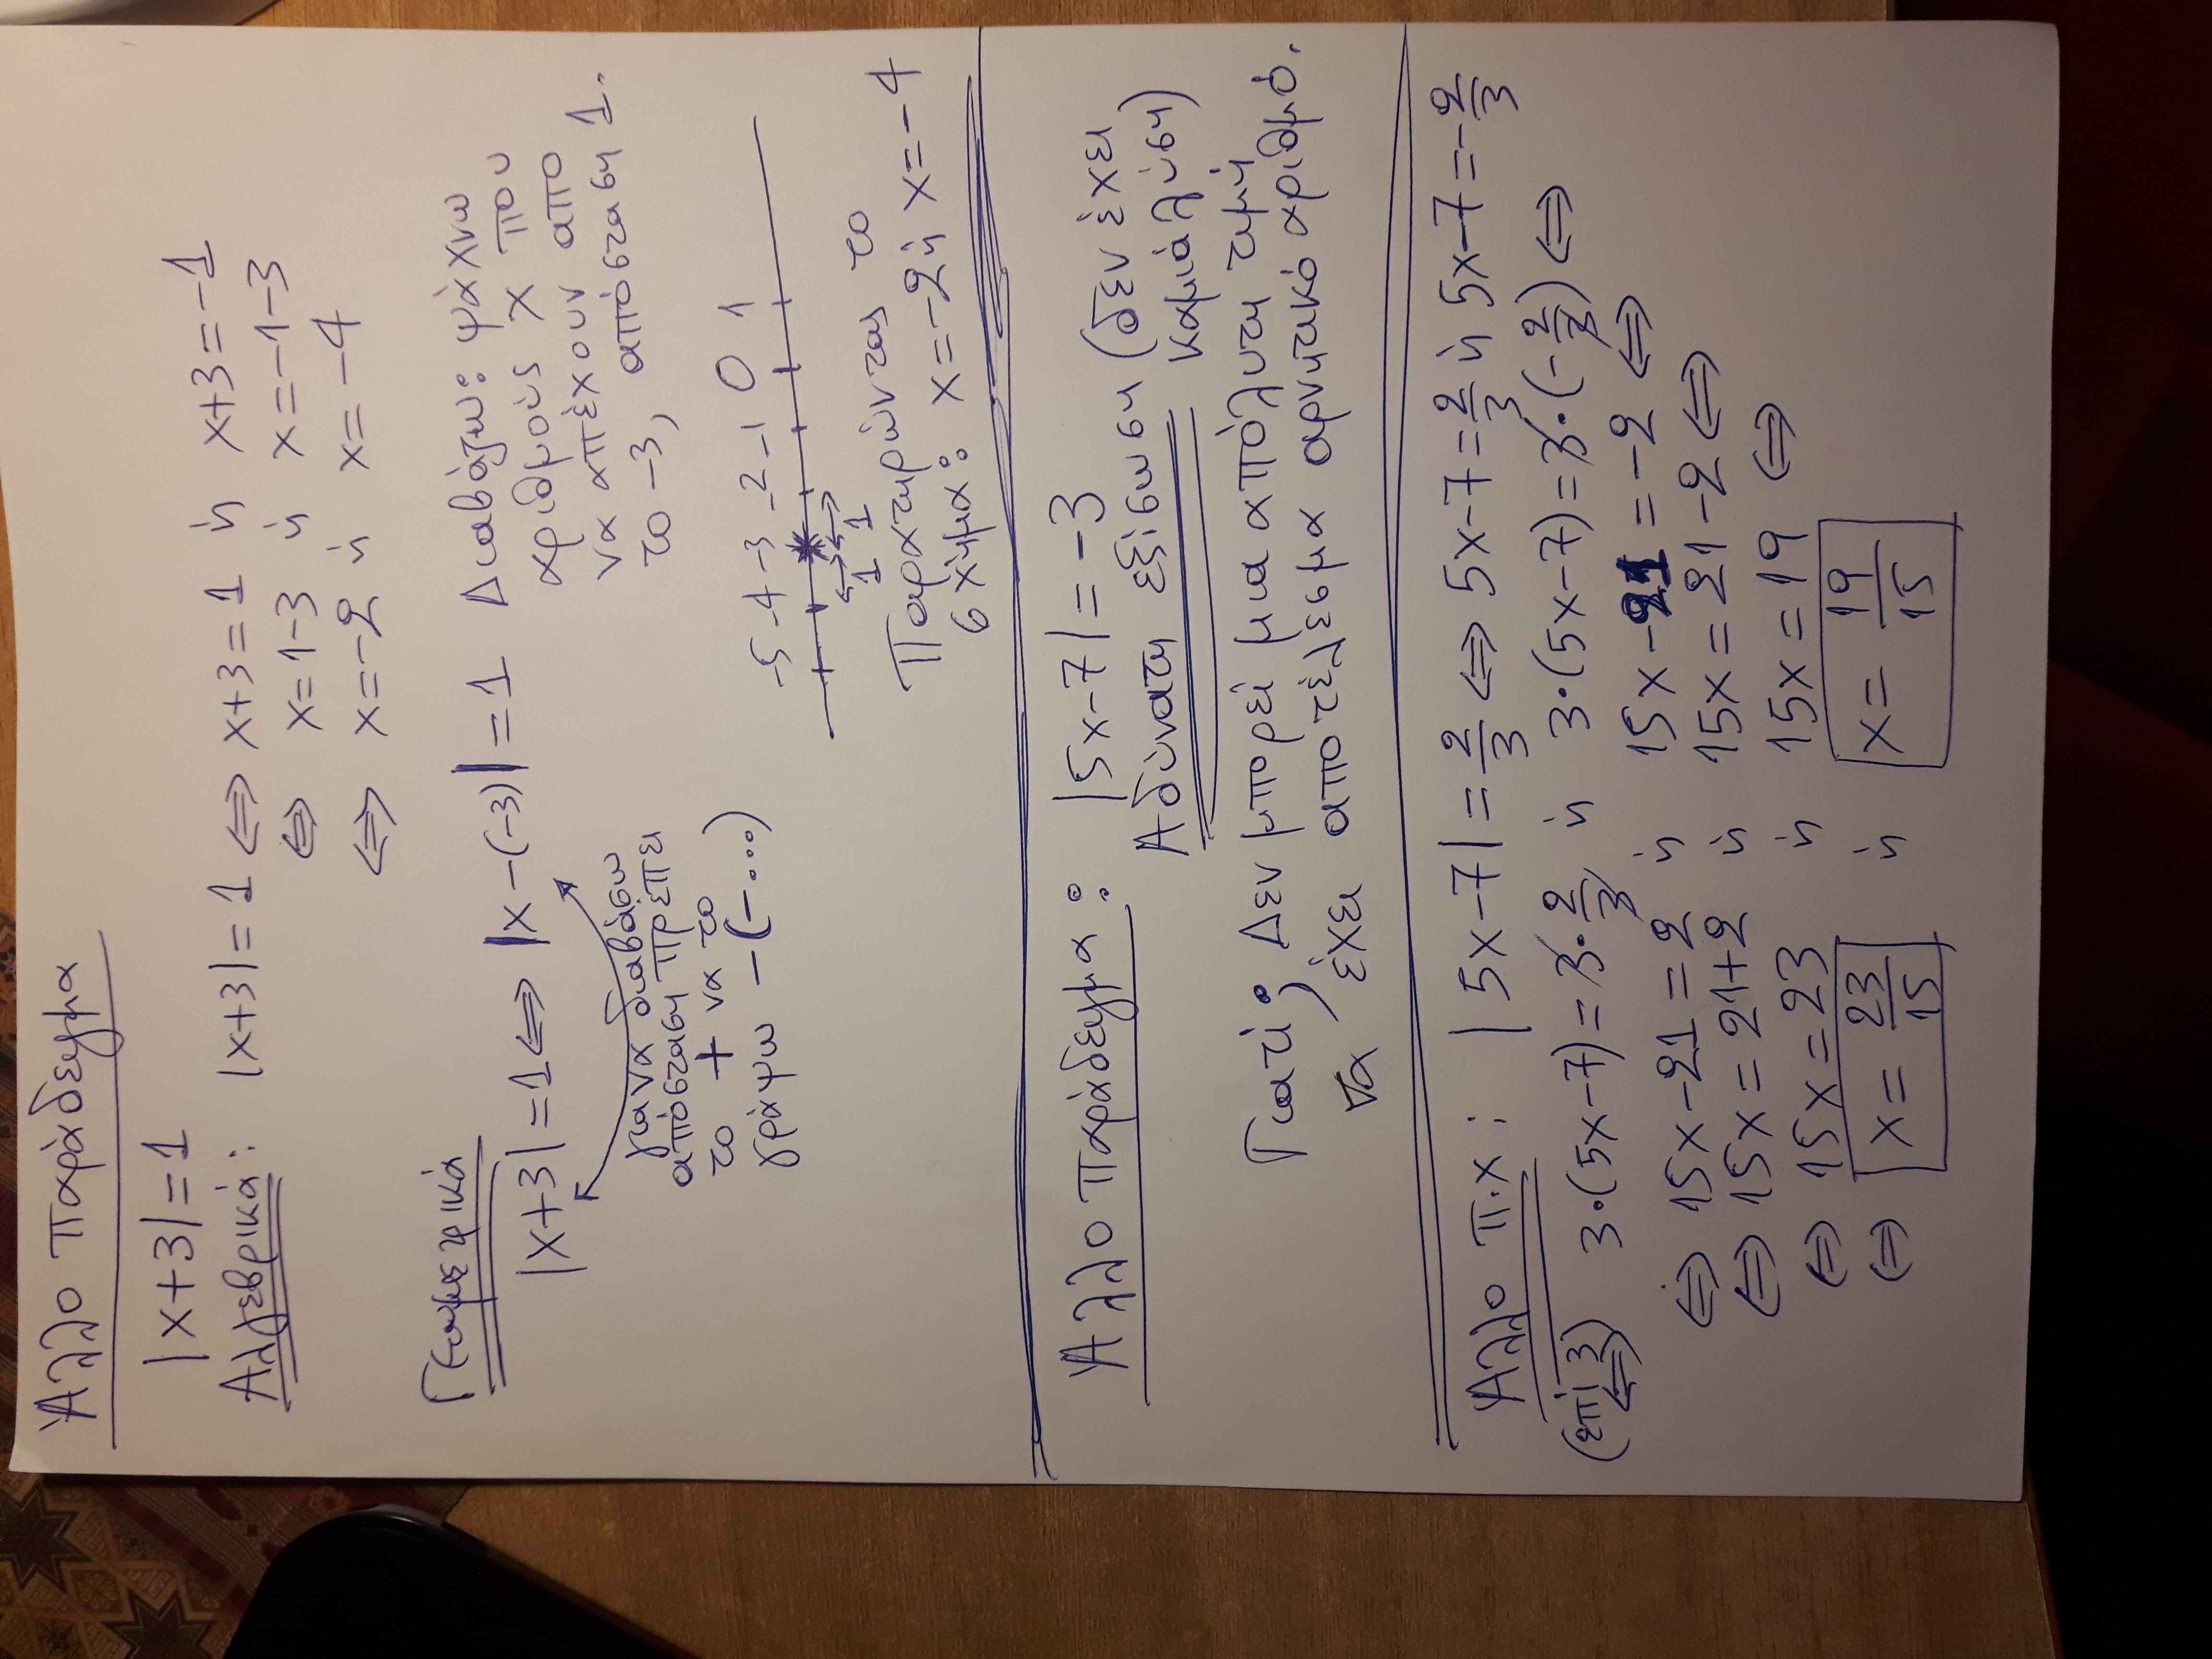 Άλλο παράδειγμα
|x+3|=1
Αλγεβρικά: |x+3|=1 ⇔ x+3=1 ή x+3=-1
⇔ x=1-3 ή x=-1-3
⇔ x=-2 ή x=-4
Γεωμετρικά
|x+3|=1 ⇔ |x-(-3)|=1 Διαβάζω: ψάχνω
αριθμούς x που
να απέχουν από
το -3, απόσταση 1.
για να διαβάσω
απόσταση πρέπει
το + να το
γράψω -(-...)
-5 -4 -3 -2 -1 0 1
1 1
Παρατηρώντας το
σχήμα: x=-2 ή x=-4
Άλλο παράδειγμα: |5x-7|=-3
Αδύνατη εξίσωση (δεν έχει
καμιά λύση)
Γιατί; Δεν μπορεί μια απόλυτη τιμή
να έχει αποτέλεσμα αρνητικό αριθμό.
Άλλο π.χ: |5x-7|=2/3 ⇔ 5x-7=2/3 ή 5x-7=-2/3
(επί 3) ⇔ 3·(5x-7)=3·2/3 ή 3·(5x-7)=3·(-2/3) ⇔
⇔ 15x-21=2 ή 15x-21=-2 ⇔
⇔ 15x=21+2 ή 15x=21-2 ⇔
⇔ 15x=23 ή 15x=19 ⇔
⇔ x=23/15 ή x=19/15